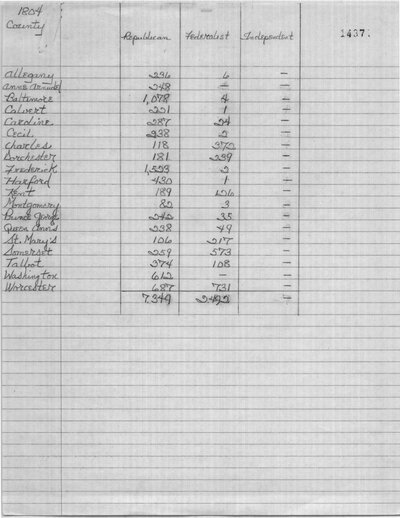 1804
County Republican Federalist Independent 1437
Allegany 236 6 —
Anne Arundel 248 — —
Baltimore 1,078 4 —
Calvert 221 1 —
Caroline 287 24 —
Cecil 238 2 —
Charles 118 372 —
Dorchester 181 239 —
Frederick 1,523 2 —
Harford 430 1 —
Kent 189 126 —
Montgomery 82 3 —
Prince George 242 35 —
Queen Ann's 238 49 —
St. Mary's 106 217 —
Somerset 259 573 —
Talbot 374 108 —
Washington 612 — —
Worcester 687 731 —
7,349 2492 —